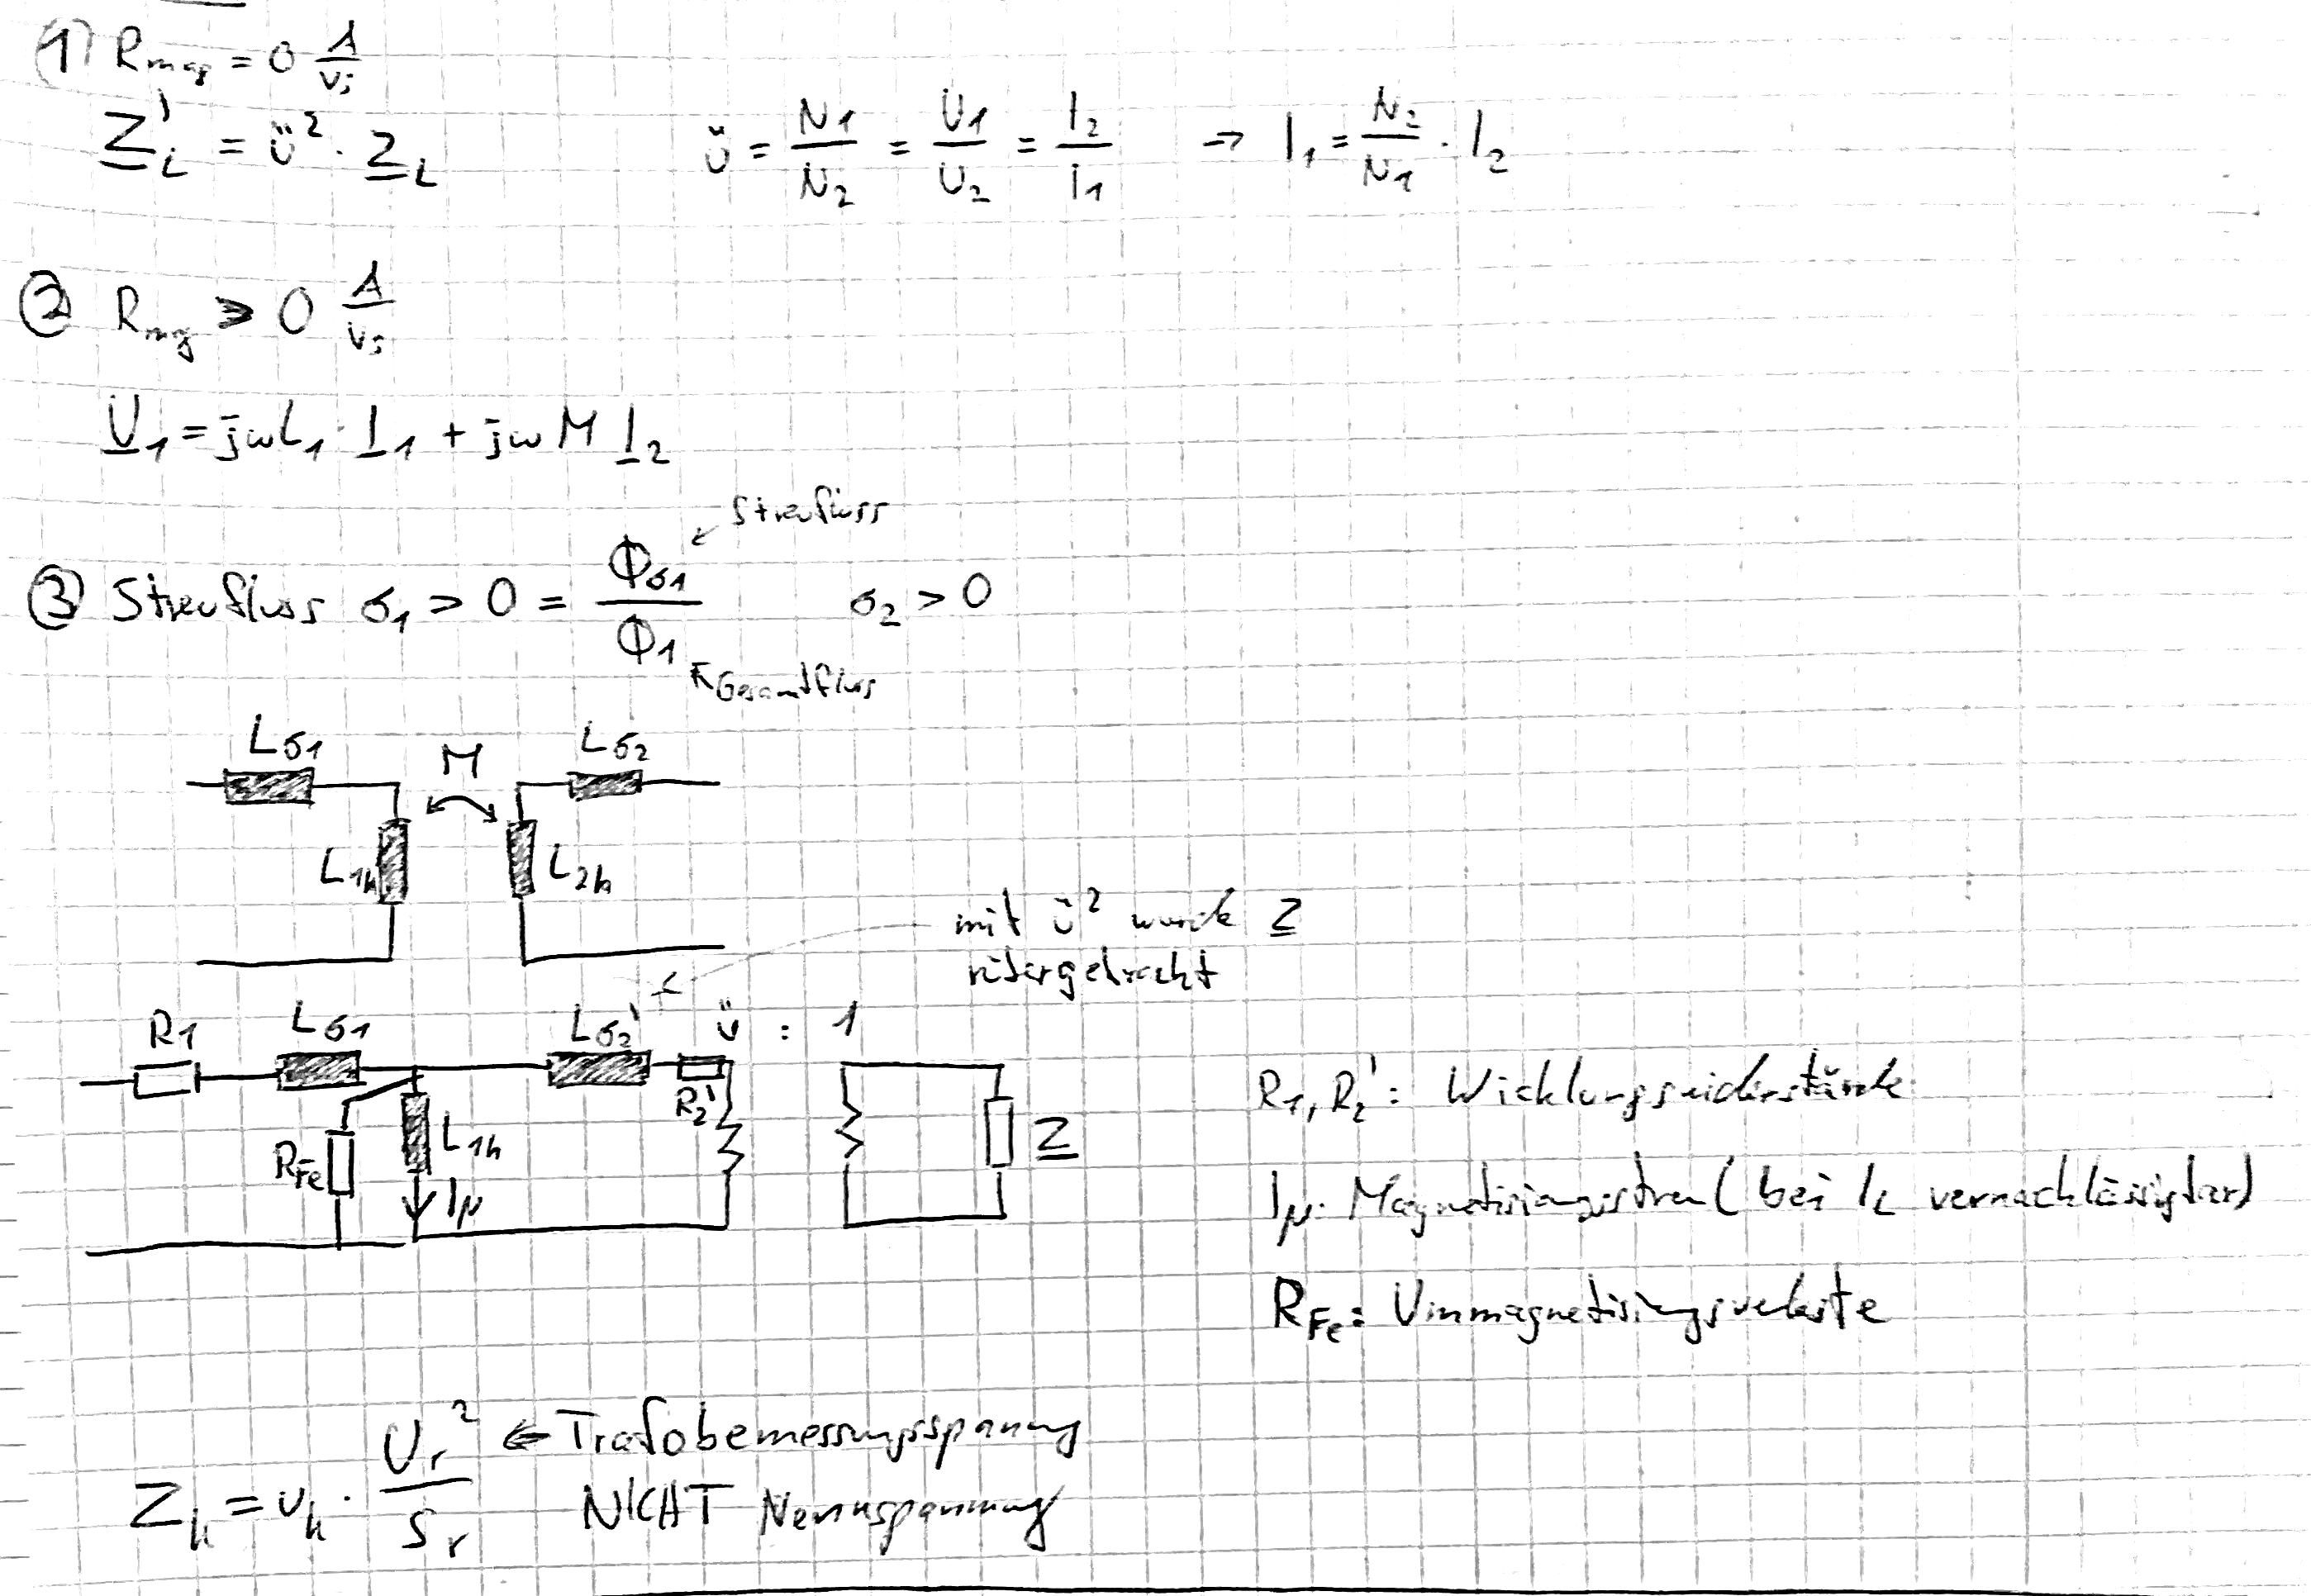 ① R_mag = 0 A/Vs
Z'_L = ü² · Z_L
ü = N1/N2 = U1/U2 = I2/I1 → I1 = N2/N1 · I2
② R_mg > 0 A/Vs
U1 = jωL1 · I1 + jωM I2
← Streufluss
③ Streufluss σ1 > 0 = Φσ1/Φ1 σ2 > 0
↖ Gesamtfluss
Lσ1 M Lσ2
L1h L2h
mit ü² wurde Z
rübergebracht
R1 Lσ1 Lσ2' ü : 1
R2'
R1, R2': Wicklungswiderstände
RFe L1h Z
Iμ
Iμ: Magnetisierungsstrom (bei IL vernachlässigbar)
RFe: Ummagnetisierungsverluste
Zk = uk · Ur²/Sr ← Trafobemessungsspannung
NICHT Nennspannung